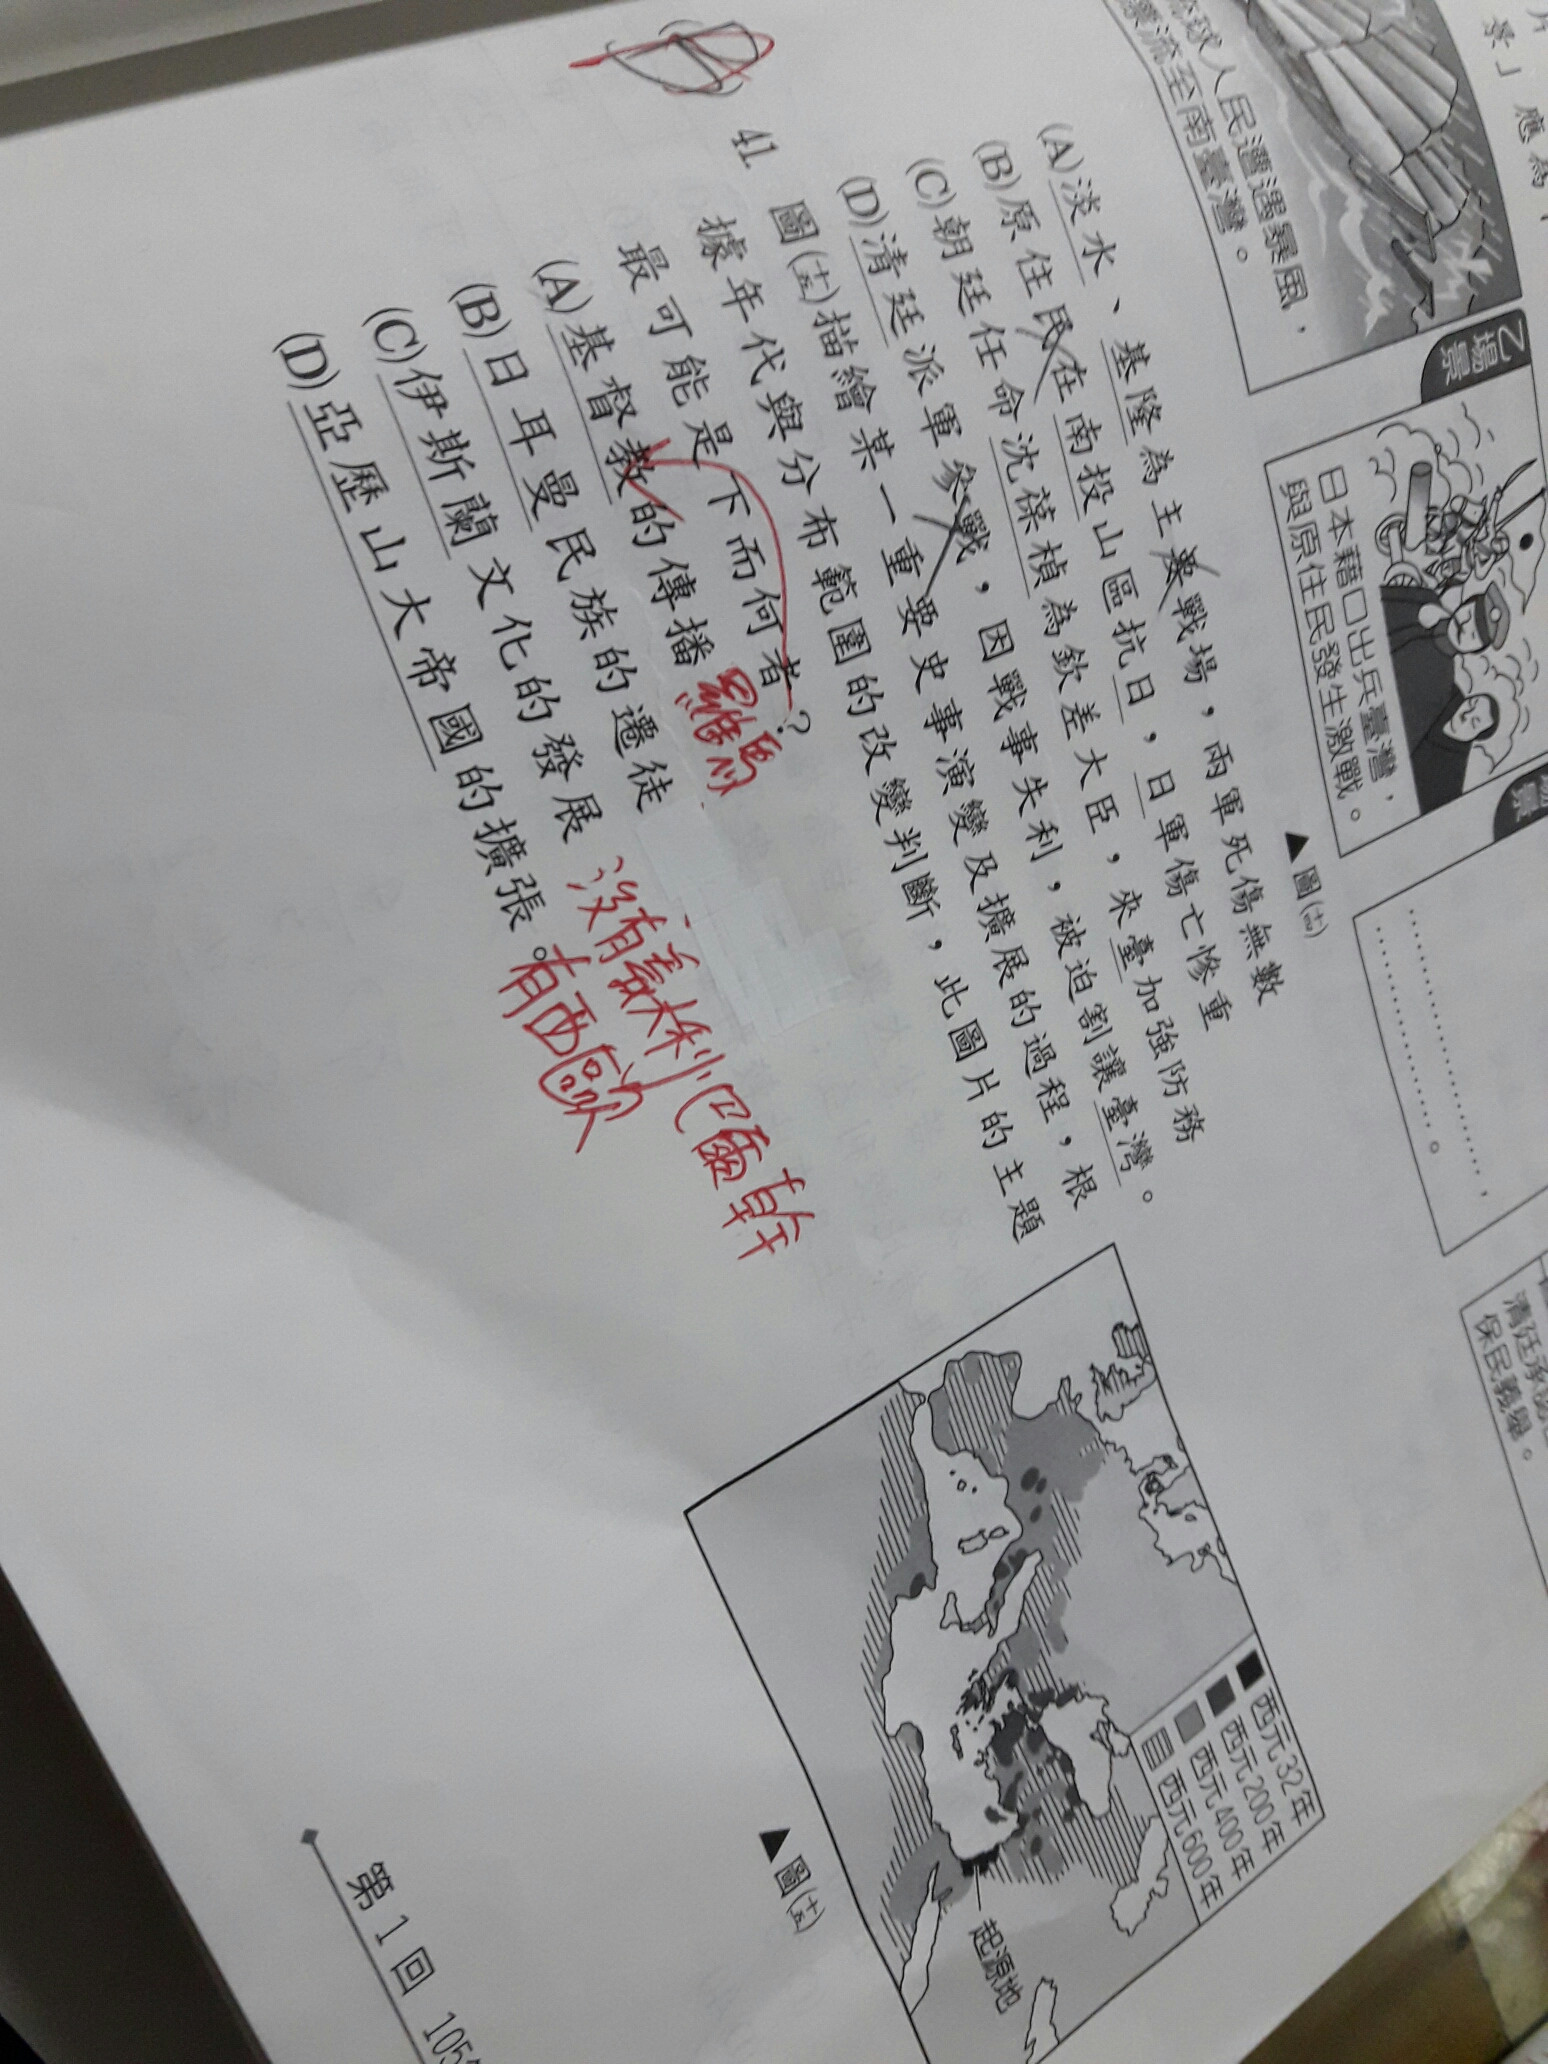 片
景」應為下
琉球人民遭遇暴風，
漂流至南臺灣。
乙場景
日本藉口出兵臺灣，
與原住民發生激戰。
場景
清廷承認
保民義舉。
▲圖(十四)
(A)淡水、基隆為主要戰場，兩軍死傷無數
(B)原住民在南投山區抗日，日軍傷亡慘重
(C)朝廷任命沈葆楨為欽差大臣，來臺加強防務
(D)清廷派軍參戰，因戰事失利，被迫割讓臺灣。
41. 圖(十五)描繪某一重要史事演變及擴展的過程，根
據年代與分布範圍的改變判斷，此圖片的主題
最可能是下而何者？
(A)基督教的傳播 羅馬
(B)日耳曼民族的遷徒
(C)伊斯蘭文化的發展 沒有義大利、巴爾幹
(D)亞歷山大帝國的擴張。有西歐
西元32年
西元200年
西元400年
西元600年
起源地
▲圖(十五)
第 1 回 105